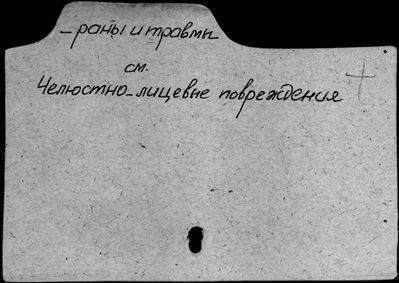 – раны и травмы
см.
Челюстно-лицевые повреждения